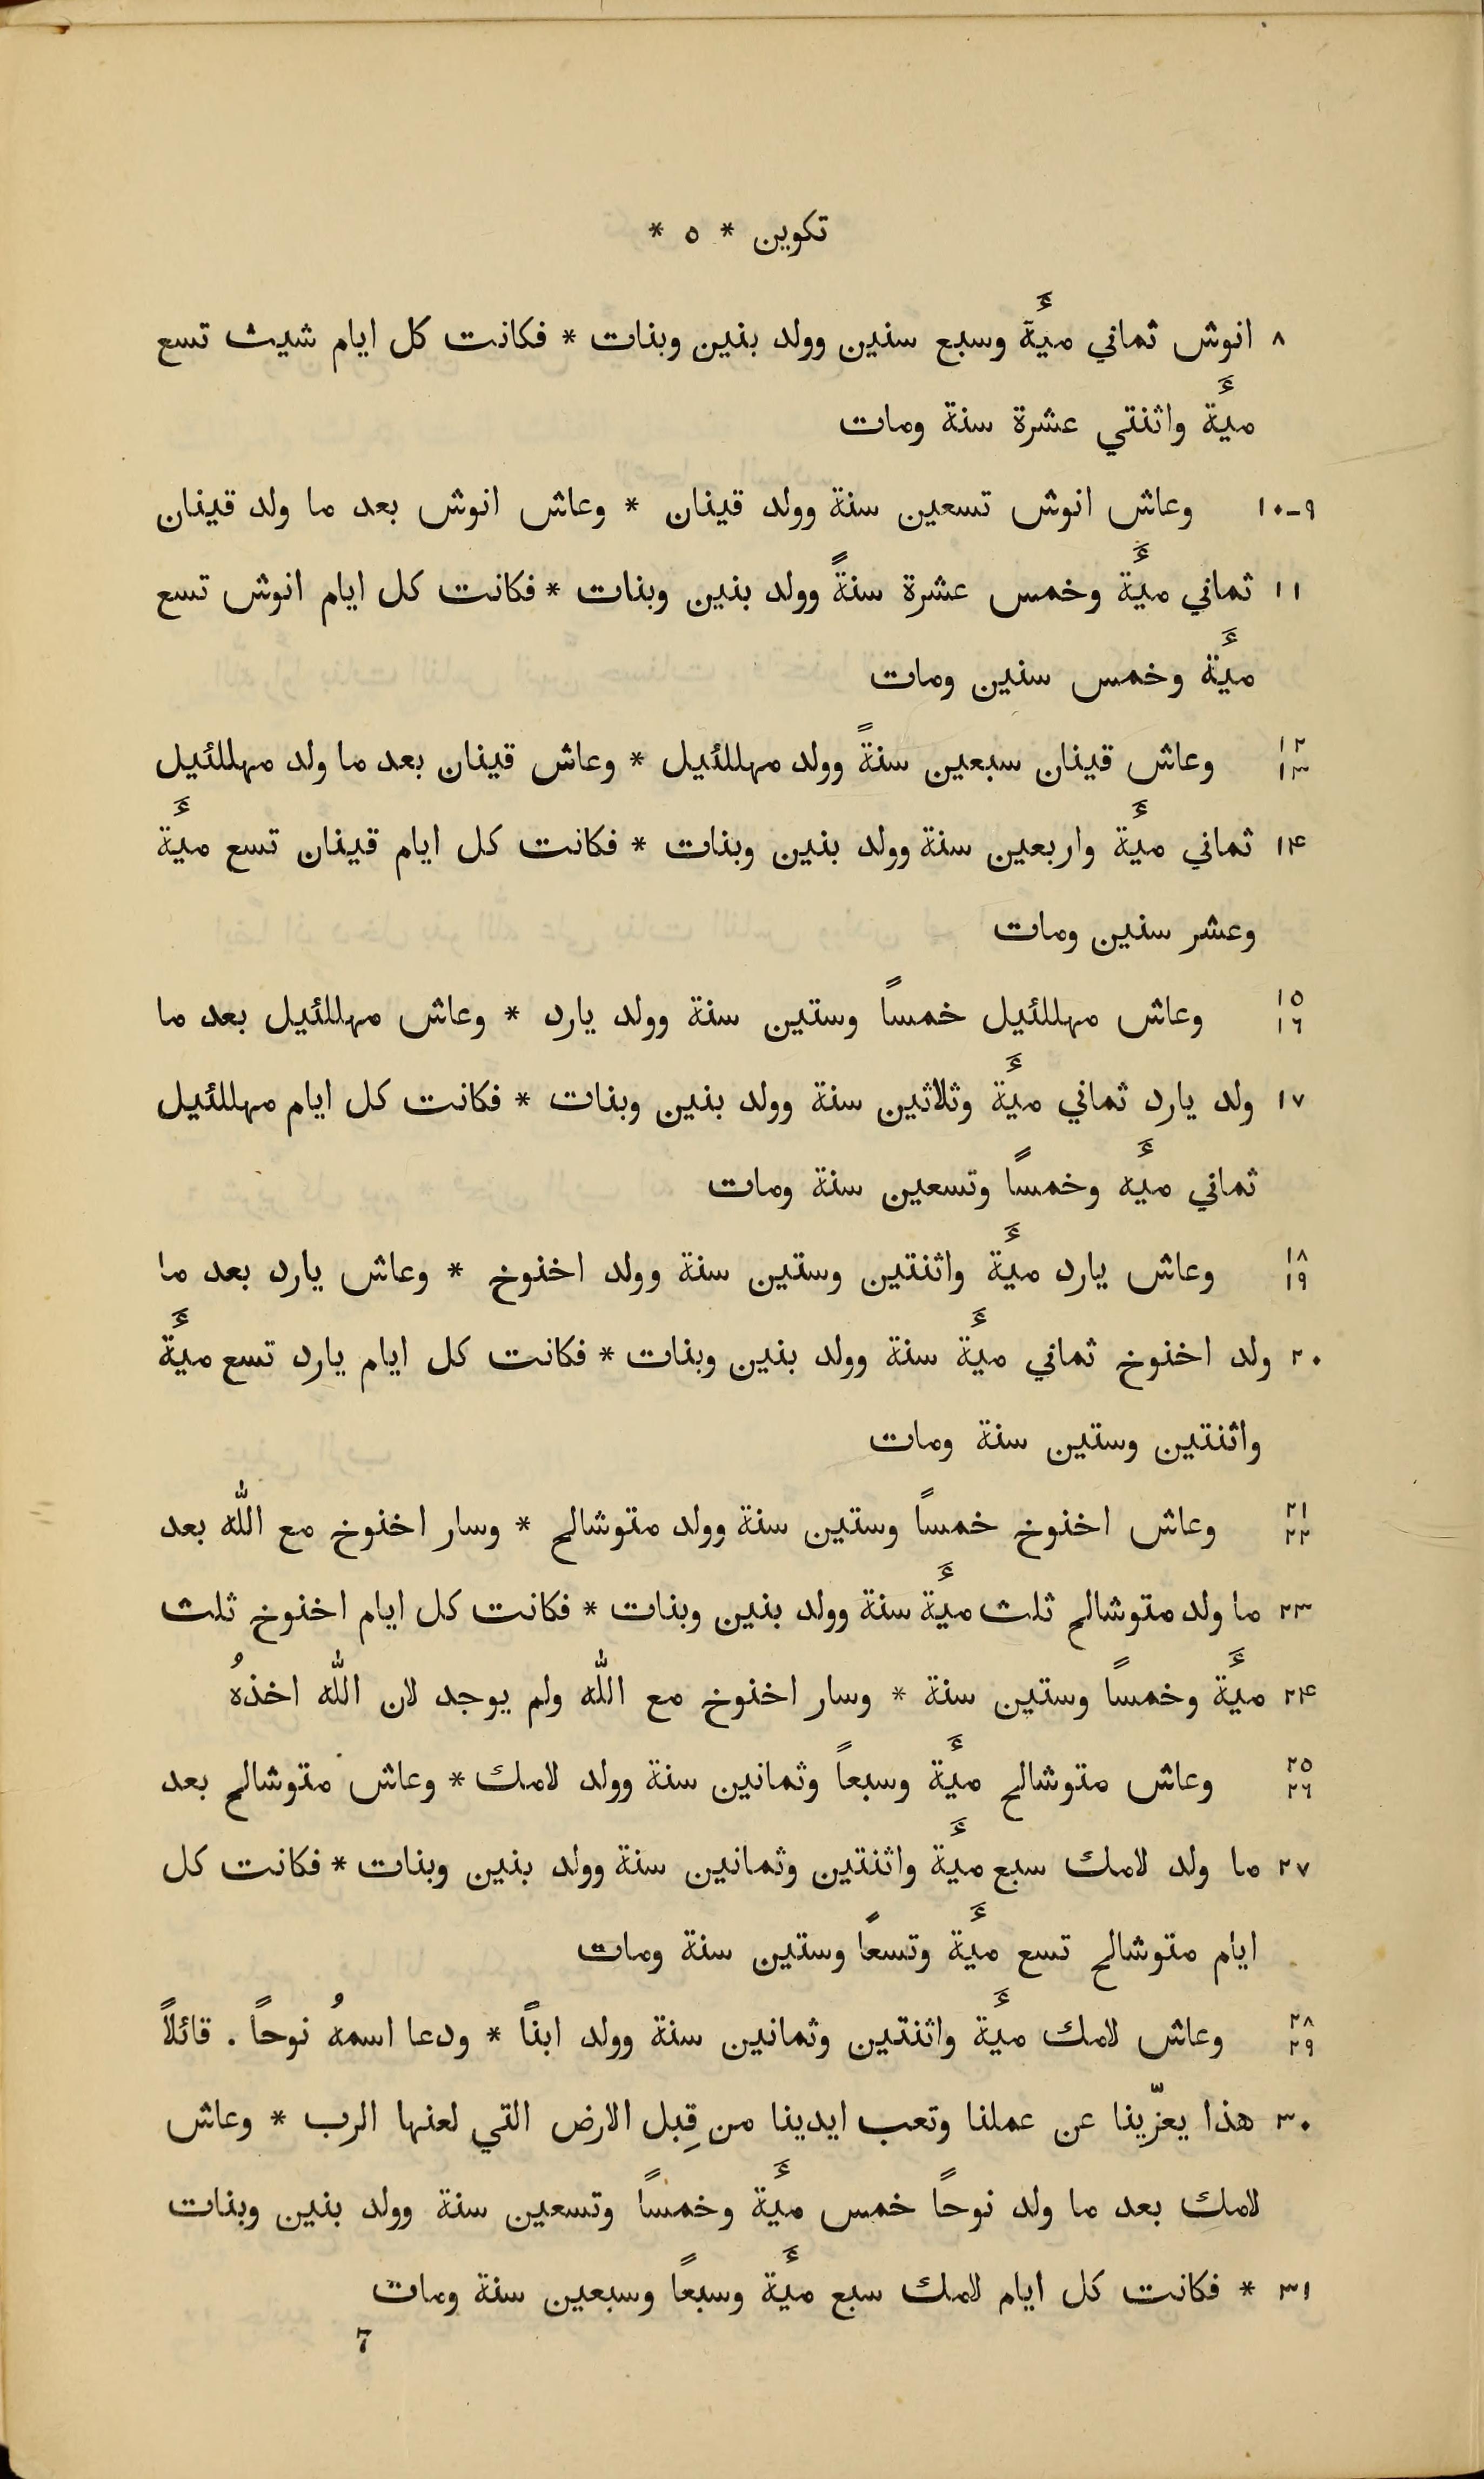 تكوين * ٥ *
٨ انوش ثماني مئَة وسبع سنين وولد بنين وبنات * فكانت كل ايام شيث تسع
مئَة واثنتي عشرة سنة ومات
٩-١٠ وعاش انوش تسعين سنة وولد قينان * وعاش انوش بعد ما ولد قينان
١١ ثماني مئَة وخمس عشرة سنةً وولد بنين وبنات * فكانت كل ايام انوش تسع
مئَة وخمس سنين ومات
١٢ ١٣ وعاش قينان سبعين سنةً وولد مهللئيل * وعاش قينان بعد ما ولد مهللئيل
١٤ ثماني مئَة واربعين سنة وولد بنين وبنات * فكانت كل ايام قينان تسع مئَة
وعشر سنين ومات
١٥ ١٦ وعاش مهللئيل خمساً وستين سنة وولد يارد * وعاش مهللئيل بعد ما
١٧ ولد يارد ثماني مئَة وثلاثين سنة وولد بنين وبنات * فكانت كل ايام مهللئيل
ثماني مئَه وخمساً وتسعين سنة ومات
١٨ ١٩ وعاش يارد مئَة واثنتين وستين سنة وولد اخنوخ * وعاش يارد بعد ما
٢٠ ولد اخنوخ ثماني مئَة سنة وولد بنين وبنات * فكانت كل ايام يارد تسع مئَة
واثنتين وستين سنة ومات
٢١ ٢٢ وعاش اخنوخ خمساً وستين سنة وولد متوشالح * وسار اخنوخ مع الله بعد
٢٣ ما ولد متوشالح ثلث مئَة سنة وولد بنين وبنات * فكانت كل ايام اخنوخ ثلث
٢٤ مئَة وخمساً وستين سنة * وسار اخنوخ مع الله ولم يوجد لان الله اخذهُ
٢٥ ٢٦ وعاش متوشالح مئَة وسبعاً وثمانين سنة وولد لامك * وعاش متوشالح بعد
٢٧ ما ولد لامك سبع مئَة واثنتين وثمانين سنة وولد بنين وبنات * فكانت كل
ايام متوشالح تسع مئَة وتسعاً وستين سنة ومات
٢٨ ٢٩ وعاش لامك مئَة واثنتين وثمانين سنة وولد ابناً * ودعا اسمهُ نوحاً . قائلاً
٣٠ هذا يعزّينا عن عملنا وتعب ايدينا من قِبل الارض التي لعنها الرب * وعاش
لامك بعد ما ولد نوحاً خمس مئَة وخمساً وتسعين سنة وولد بنين وبنات
٣١ * فكانت كل ايام لامك سبع مئَة وسبعاً وسبعين سنة ومات
7